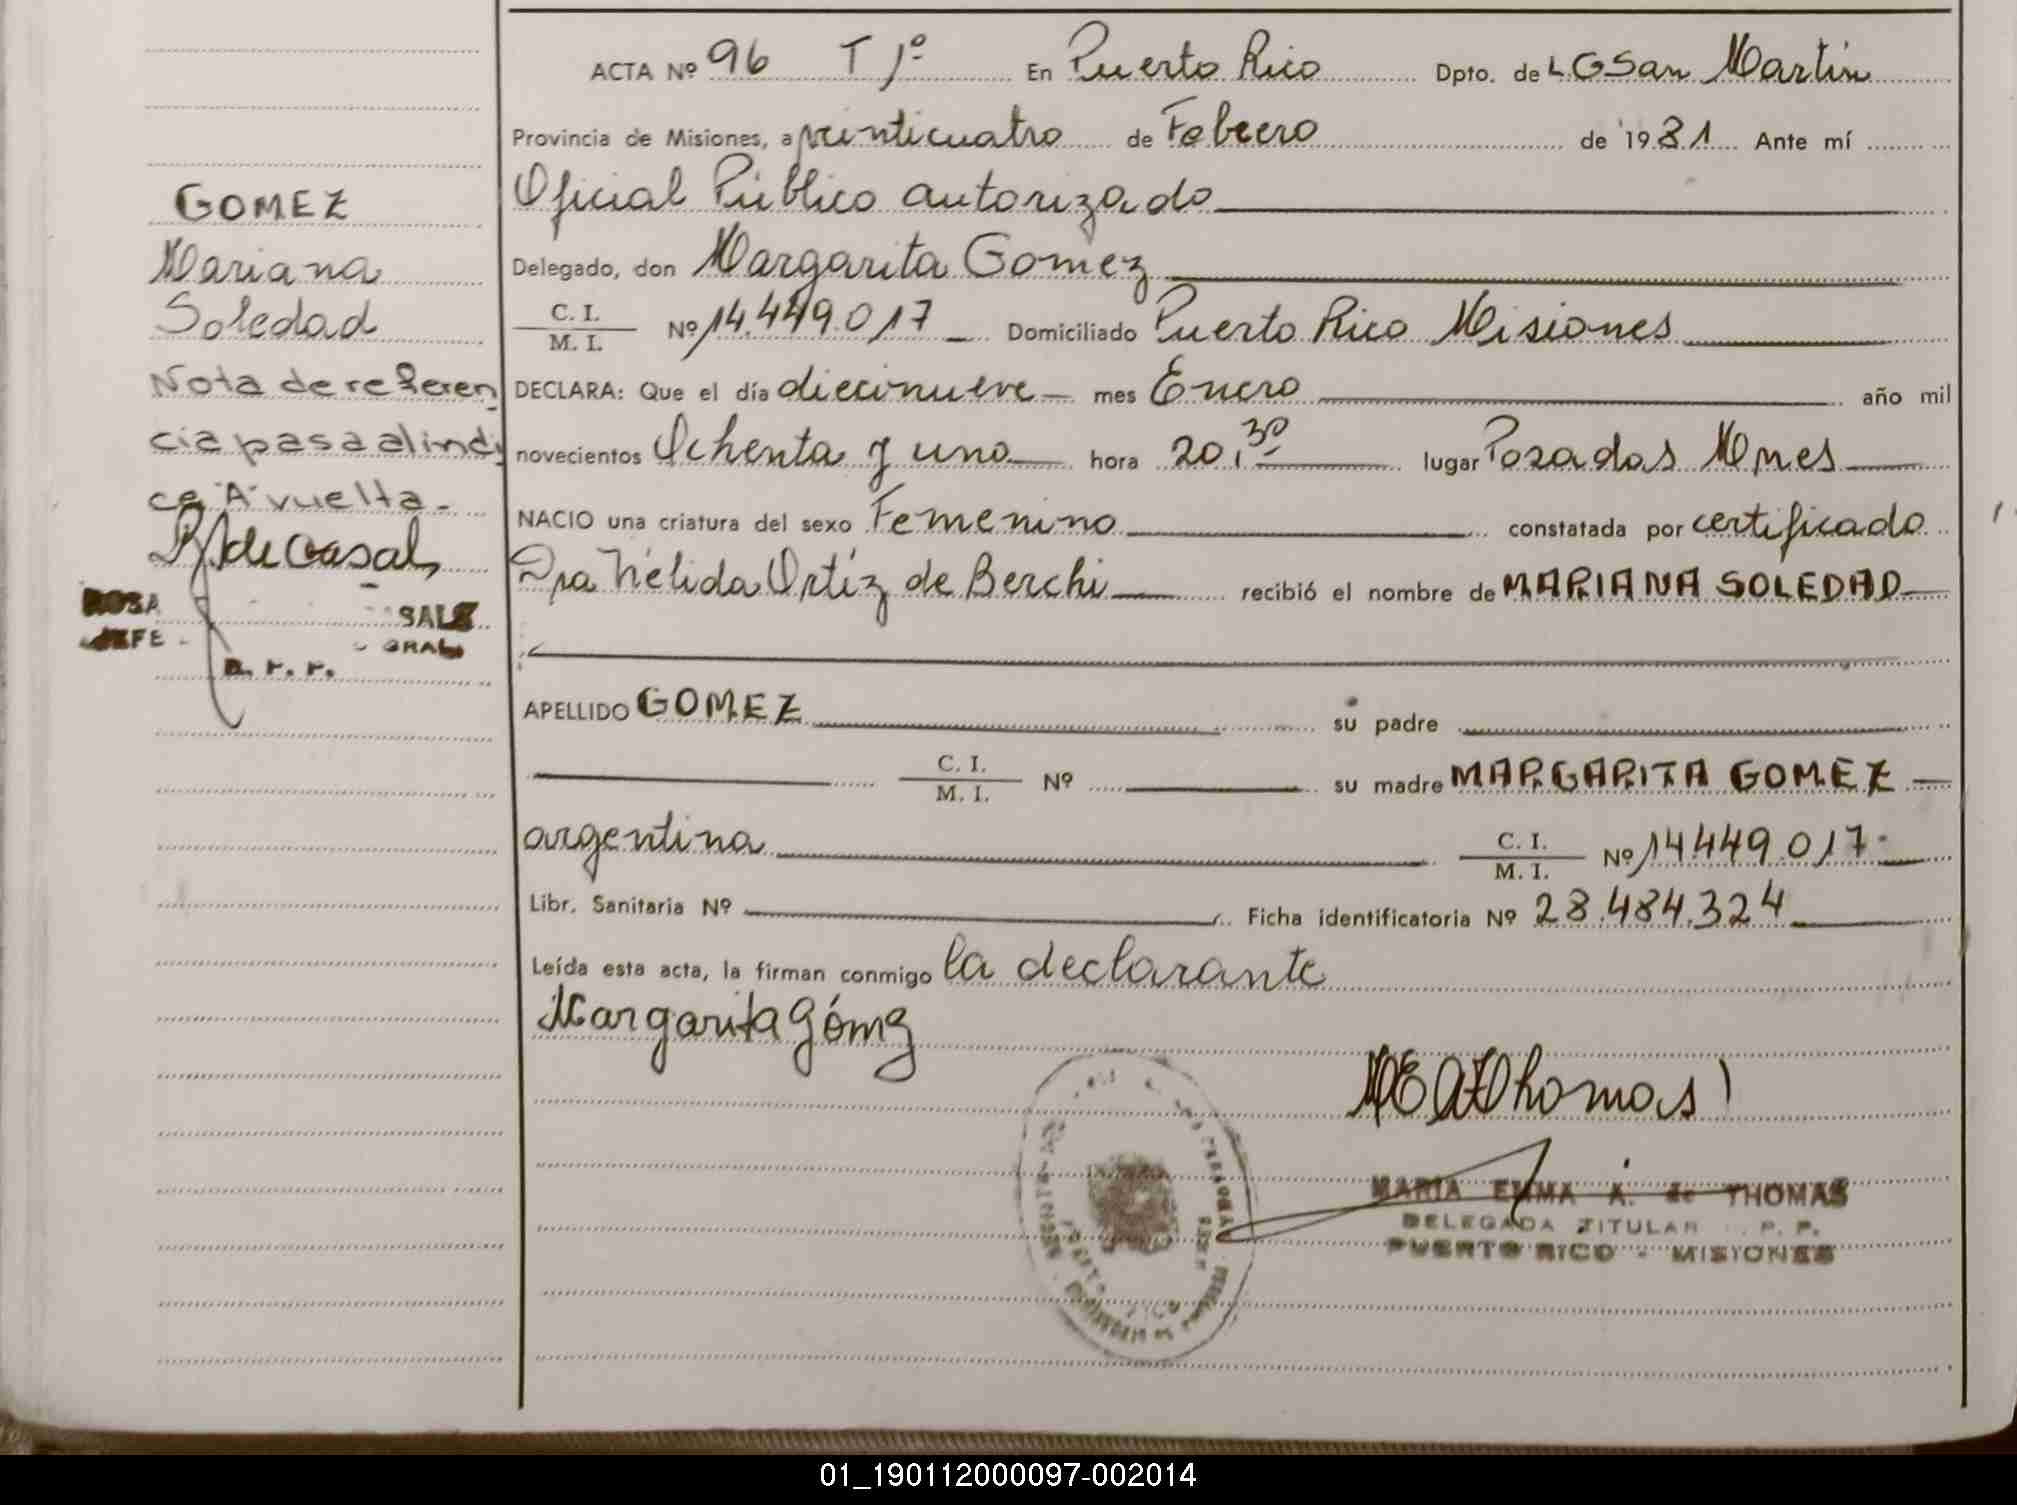 ACTA Nº 96 T 1º En Puerto Rico Dpto. de LGSan Martín
Provincia de Misiones, a veinticuatro de Febrero de 1981 Ante mí
Oficial Público autorizado
Delegado, don Margarita Gomez
C. I.
M. I.
Nº 14.449.017 Domiciliado Puerto Rico Misiones
DECLARA: Que el día diecinueve mes Enero año mil
novecientos Ochenta y uno hora 20,30 lugar Posadas Mnes
NACIO una criatura del sexo Femenino constatada por certificado
Dra Nélida Ortíz de Berchi recibió el nombre de MARIANA SOLEDAD
APELLIDO GOMEZ su padre
C. I.
M. I.
Nº su madre MARGARITA GOMEZ
argentina C. I.
M. I.
Nº 14449.017
Libr. Sanitaria Nº Ficha identificatoria Nº 28.484.324
Leída esta acta, la firman conmigo la declarante
Margarita Gómz
GOMEZ
Mariana
Soledad
Nota de referen
cia pasa al indi
ce "A" vuelta.
de Casal
ROSA SALE
JEFE GRAL
R. P. P.
Thomas
MARIA EMMA A. de THOMAS
DELEGADA TITULAR P. P.
PUERTO RICO - MISIONES
01_190112000097-002014